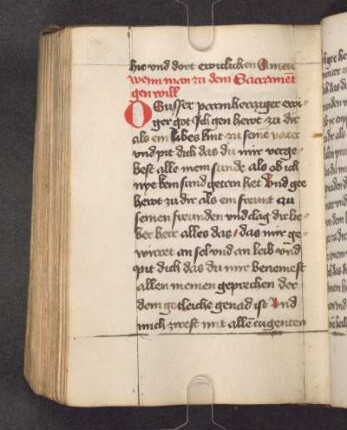 hie vnd dort ewiclichen Amen
wenn man zu dem Sacrament
gen will
O Susser parmherziger ewi
ger got Ich gen hewt zu dir
als ein libes kint zu seine vater
vnd pit dich das du mir verge
best alle mein sunde als ob ich
nye kein sund getten het Vnd gee
hewt zu dir als ein freunt zu
seinen freunden vnd clag dir lie
ber herr alles das das mir ge
wirret an sel vnd an leib vnd
pit dich das du mir benemest
allen meinen geprechen der
dem gotleiche genad ist Vnd
mich zirest mit alle tugenten